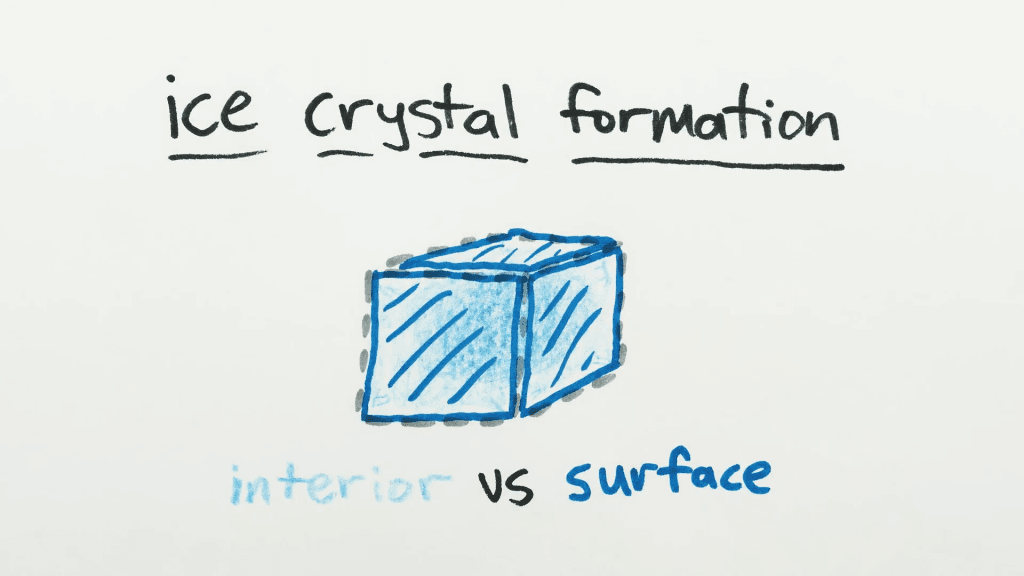 ice crystal formation
interior vs surface